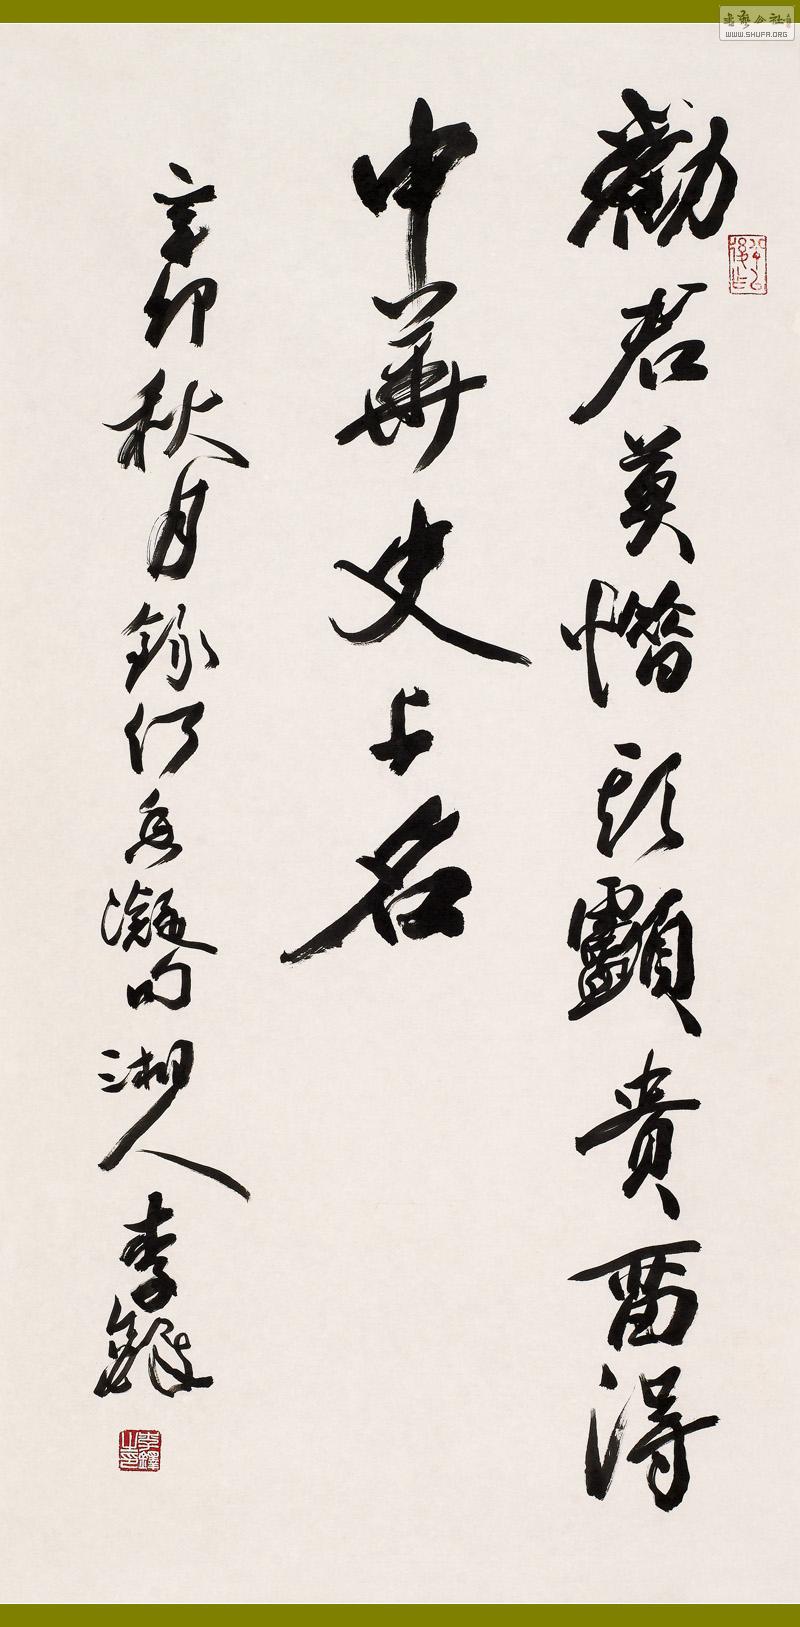 勸君莫惜頭顱貴留得
中華史上名
辛卯秋月錄何香凝句湘人李鐸
李鐸之印
WWW.SHUFA.ORG